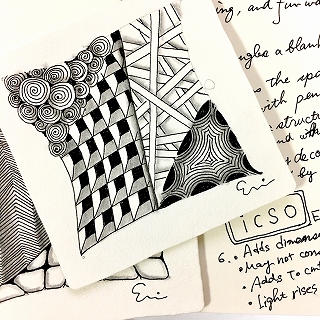 ing, and fun wa
ngles a blank
s the spa
with pen
structu
deco
by
Eni
icso
6. • Adds dimens
• May not con
• Adds to cont
• Light rises
Eni